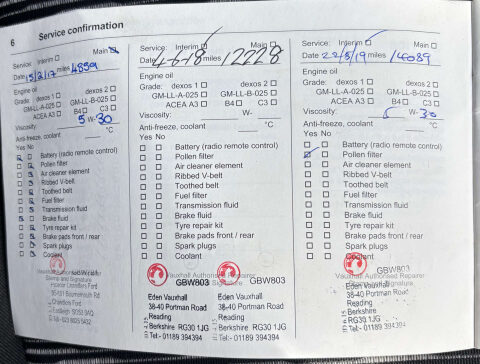 6
Service confirmation
Service: Interim Main
Date 15/2/17 miles 4859
Engine oil
Grade: dexos 1 dexos 2
GM-LL-A-025 GM-LL-B-025
ACEA A3 B4 C3
Viscosity: 5 W- 30
Anti-freeze, coolant °C
Yes No
Battery (radio remote control)
Pollen filter
Air cleaner element
Ribbed V-belt
Toothed belt
Fuel filter
Transmission fluid
Brake fluid
Tyre repair kit
Brake pads front / rear
Spark plugs
Coolant
Vauxhall Authorised Repairer
Stamp and Signature
Chandlers Ford
Eastleigh
Service: Interim Main
Date 4-6-18 miles 12228
Engine oil
Grade: dexos 1 dexos 2
GM-LL-A-025 GM-LL-B-025
ACEA A3 B4 C3
Viscosity: W-
Anti-freeze, coolant °C
Yes No
Battery (radio remote control)
Pollen filter
Air cleaner element
Ribbed V-belt
Toothed belt
Fuel filter
Transmission fluid
Brake fluid
Tyre repair kit
Brake pads front / rear
Spark plugs
Coolant
Vauxhall Authorised Repairer
GBW803 Signature GBW803
Eden Vauxhall
38-40 Portman Road
Reading
Berkshire RG30 1JG
Tel:- 01189 394394
Eden Vauxhall
38-40 Portman Road
Reading
Berkshire RG30 1JG
Tel:- 01189 394394
Service: Interim Main
Date 22/8/19 miles 14089
Engine oil
Grade: dexos 1 dexos 2
GM-LL-A-025 GM-LL-B-025
ACEA A3 B4 C3
Viscosity: 5 W- 30
Anti-freeze, coolant °C
Yes No
Battery (radio remote control)
Pollen filter
Air cleaner element
Ribbed V-belt
Toothed belt
Fuel filter
Transmission fluid
Brake fluid
Tyre repair kit
Brake pads front / rear
Spark plugs
Coolant
GBW803
Vauxhall Authorised Repairer
Eden Vauxhall
38-40 Portman Road
Reading
Berkshire
RG30 1JG
Tel:- 01189 394394